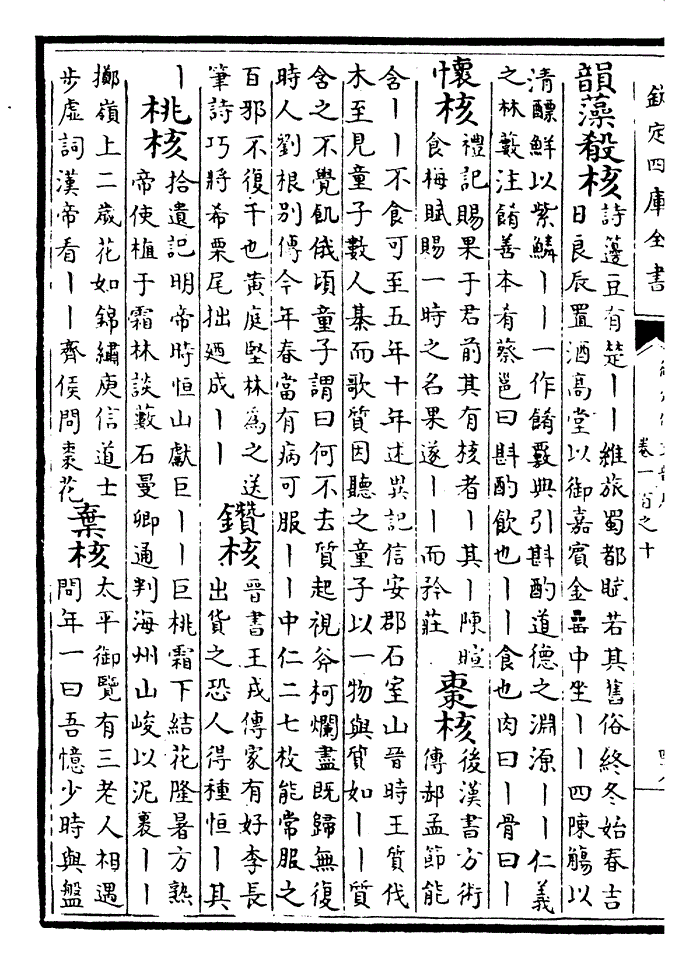 欽定四庫全書
卷一百之十
韻藻殽核
詩籩豆有楚丨丨維旅蜀都賦若其舊俗終冬始春吉
日良辰置酒高堂以御嘉賓金罍中坐丨丨四陳觴以
清醥鮮以紫鱗丨丨一作餚覈典引斟酌道德之淵源丨丨仁義
之林藪注餚善本肴蔡邕曰斟酌飲也丨丨食也肉曰丨骨曰丨
懷核
禮記賜果于君前其有核者丨其丨陳暄
食梅賦賜一時之名果遂丨丨而矜莊
棗核
後漢書方術
傳郝孟節能
含丨丨不食可至五年十年述異記信安郡石室山晉時王質伐
木至見童子數人棊而歌質因聽之童子以一物與質如丨丨質
含之不覺飢俄頃童子謂曰何不去質起視斧柯爛盡既歸無復
時人劉根别傳今年春當有病可服丨丨中仁二七枚能常服之
百邪不復干也黄庭堅林為之送
筆詩巧將希栗尾拙廼成丨丨
鑽核
晉書王戎傳家有好李長
出貨之恐人得種恒丨其
丨
桃核
拾遺記明帝時恒山獻巨丨丨巨桃霜下結花隆暑方熟
帝使植于霜林談藪石曼卿通判海州山峻以泥裹丨丨
擲嶺上二歲花如錦繡庾信道士
步虛詞漢帝看丨丨齊侯問棗花
棄核
太平御覽有三老人相遇
問年一曰吾憶少時與盤